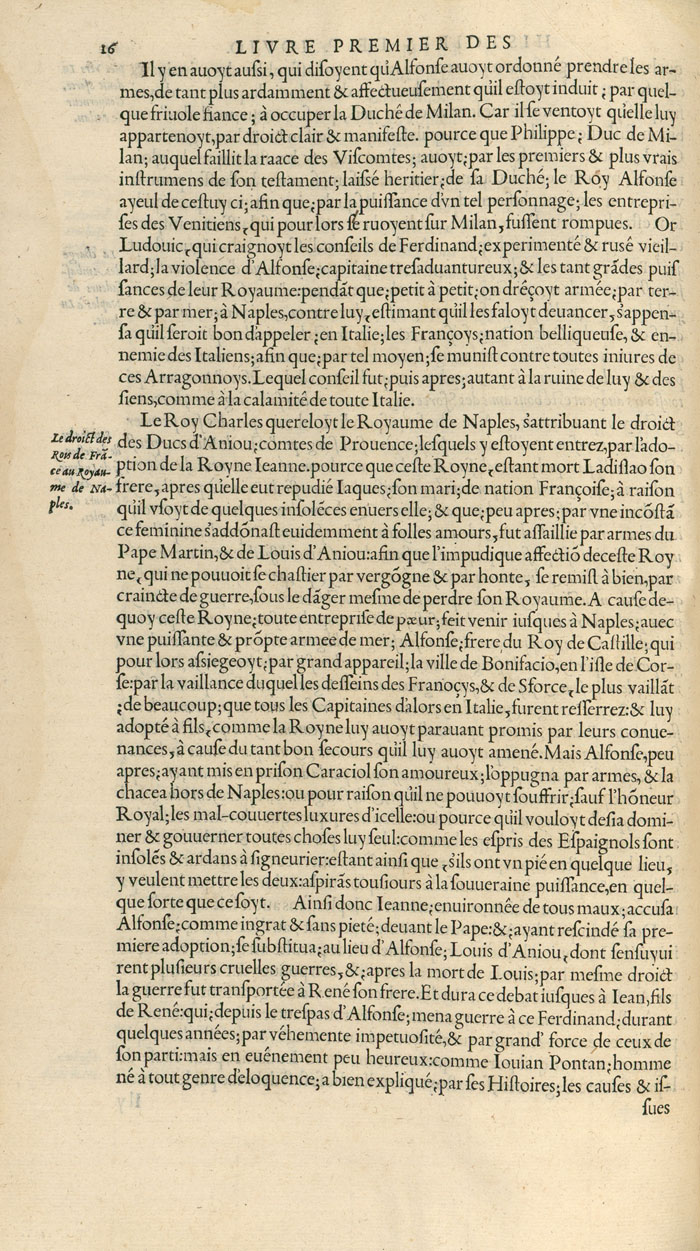 16 LIVRE PREMIER DES
Il y en auoyt auſsi, qui diſoyent qu'Alfonſe auoyt ordonné prendre les ar-
mes, de tant plus ardamment & affectueuſement qu'il eſtoyt induit ; par quel-
que friuole fiance ; à occuper la Duché de Milan. Car il ſe ventoyt qu'elle luy
appartenoyt, par droict clair & manifeſte. pource que Philippe ; Duc de Mi-
lan ; auquel faillit la raace des Viſcomtes ; auoyt ; par les premiers & plus vrais
inſtrumens de ſon teſtament ; laiſsé heritier ; de ſa Duché ; le Roy Alfonſe
ayeul de ceſtuy ci ; afin que ; par la puiſſance d'vn tel perſonnage ; les entrepri-
ſes des Venitiens, qui pour lors ſe ruoyent ſur Milan, fuſſent rompues. Or
Ludouic, qui craignoyt les conſeils de Ferdinand ; experimenté & rusé vieil-
lard ; la violence d'Alfonſe ; capitaine treſaduantureux ; & les tant grãdes puiſ
ſances de leur Royaume : pendãt que ; petit à petit ; on dréçoyt armée ; par ter-
re & par mer ; à Naples, contre luy, eſtimant qu'il les faloyt deuancer, s'appen-
ſa qu'il ſeroit bon d'appeler ; en Italie ; les Françoys ; nation belliqueuſe, & en-
nemie des Italiens ; afin que ; par tel moyen ; ſe muniſt contre toutes iniures de
ces Arragonnoys. Lequel conſeil fut ; puis apres ; autant à la ruine de luy & des
ſiens, comme à la calamité de toute Italie.
Le Roy Charles quereloyt le Royaume de Naples, s'attribuant le droict
Le droict des
Rois de Frã-
ce au Royau-
me de Na-
ples.
des Ducs d'Aniou ; comtes de Prouence ; leſquels y eſtoyent entrez, par l'ado-
ption de la Royne Ieanne. pource que ceſte Royne, eſtant mort Ladiſlao ſon
frere, apres qu'elle eut repudié Iaques ; ſon mari ; de nation Françoiſe ; à raiſon
qu'il vſoyt de quelques inſolẽces enuers elle ; & que ; peu apres ; par vne incõſtã
ce feminine s'addõnaſt euidemment à folles amours, fut aſſaillie par armes du
Pape Martin, & de Louis d'Aniou : afin que l'impudique affectiõ de ceſte Roy
ne, qui ne pouuoit ſe chaſtier par vergõgne & par honte, ſe remiſt à bien, par
craincte de guerre, ſous le dãger meſme de perdre ſon Royaume. A cauſe de-
quoy ceſte Royne ; toute entrepriſe de pæur ; feit venir iuſques à Naples ; auec
vne puiſſante & prõpte armee de mer ; Alfonſe ; frere du Roy de Caſtille ; qui
pour lors aſsiegeoyt ; par grand appareil ; la ville de Bonifacio, en l'iſle de Cor-
ſe : par la vaillance duquel les deſſeins des Franoçys, & de Sforce, le plus vaillãt
; de beaucoup ; que tous les Capitaines d'alors en Italie, furent reſſerrez : & luy
adopté à fils, comme la Royne luy auoyt parauant promis par leurs conue-
nances, à cauſe du tant bon ſecours qu'il luy auoyt amené. Mais Alfonſe, peu
apres ; ayant mis en priſon Caraciol ſon amoureux ; l'oppugna par armes, & la
chacea hors de Naples : ou pour raiſon qu'il ne pouuoyt ſouffrir ; ſauf l'hõneur
Royal ; les mal-couuertes luxures d'icelle : ou pource qu'il vouloyt deſia domi-
ner & gouuerner toutes choſes luy ſeul : comme les eſpris des Eſpaignols ſont
inſolẽs & ardans à ſigneurier : eſtant ainſi que, s'ils ont vn pié en quelque lieu,
y veulent mettre les deux : aſpirãs touſiours à la ſouueraine puiſſance, en quel-
que ſorte que ce ſoyt. Ainſi donc Ieanne ; enuironnée de tous maux ; accuſa
Alfonſe ; comme ingrat & ſans pieté ; deuant le Pape : & ; ayant reſcindé ſa pre-
miere adoption ; ſe ſubſtitua ; au lieu d'Alfonſe ; Louis d'Aniou, dont ſenſuyui
rent pluſieurs cruelles guerres, & ; apres la mort de Louis ; par meſme droict
la guerre fut tranſportée à René ſon frere. Et dura ce debat iuſques à Iean, fils
de René : qui ; depuis le treſpas d'Alfonſe ; mena guerre à ce Ferdinand ; durant
quelques années ; par véhemente impetuoſité, & par grand' force de ceux de
ſon parti : mais en euénement peu heureux : comme Iouian Pontan ; homme
né à tout genre d'eloquence ; a bien expliqué ; par ſes Hiſtoires ; les cauſes & iſ-
ſues